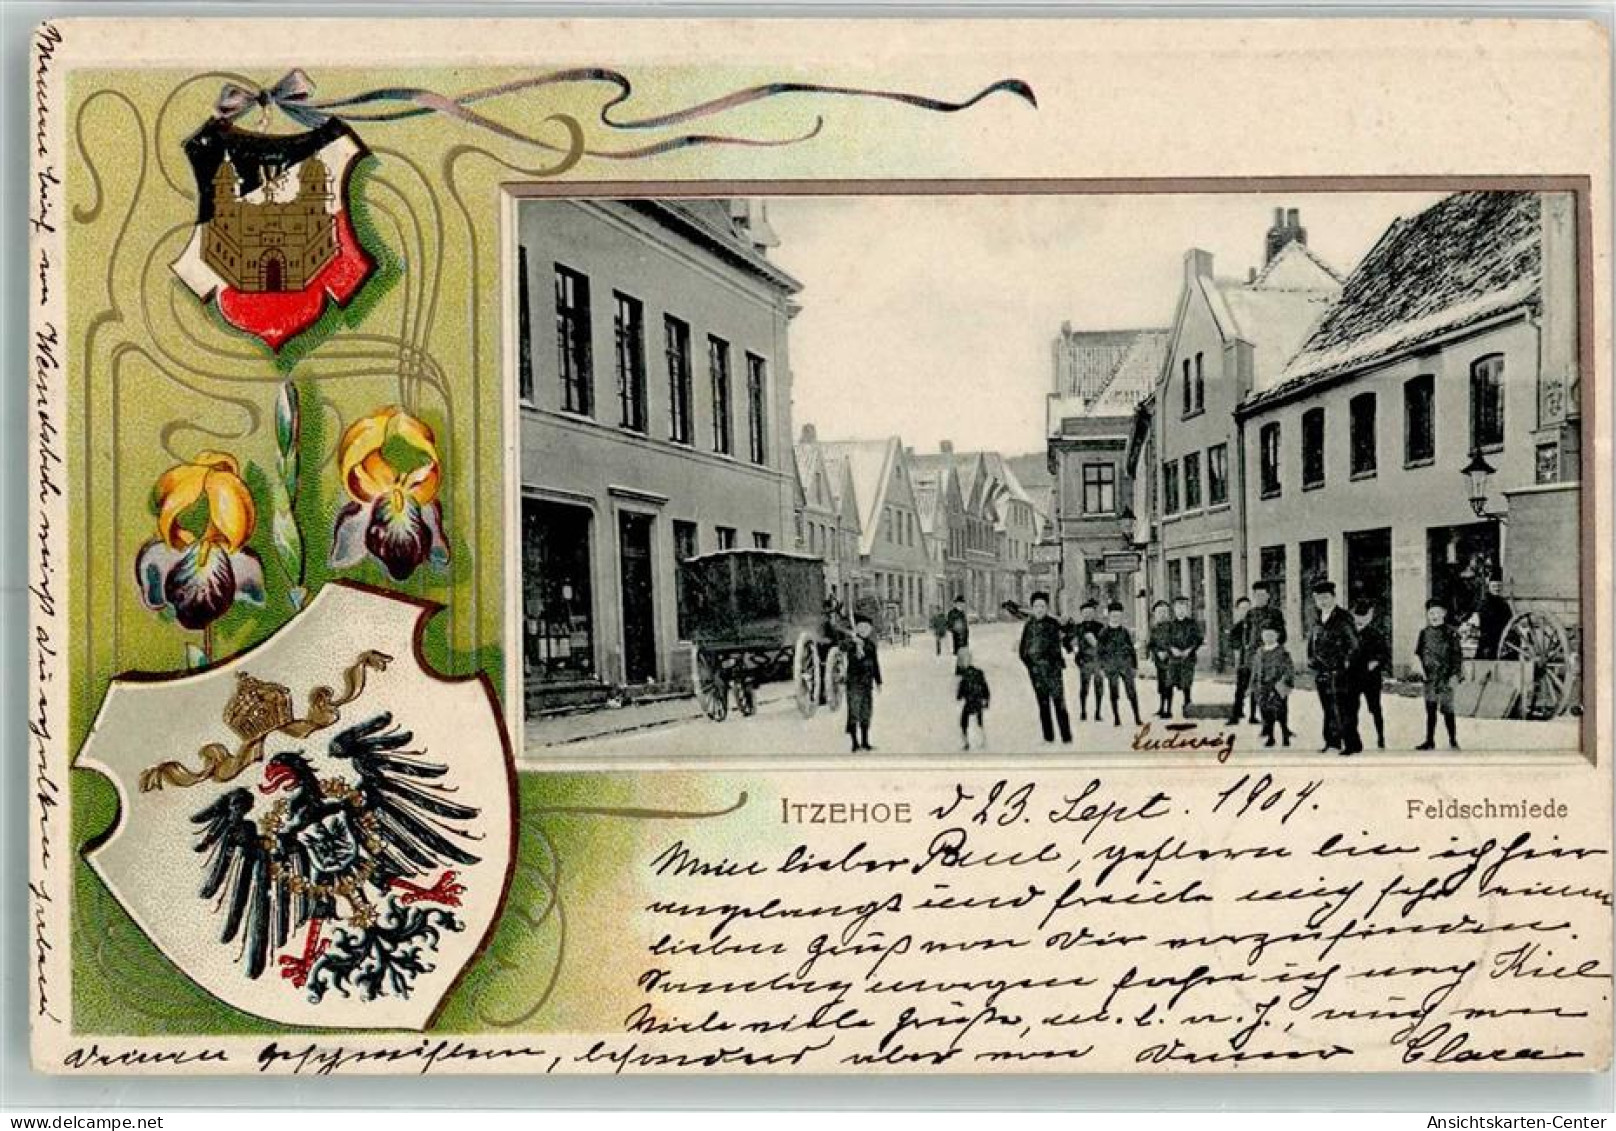 Ludwig
ITZEHOE d 23. Sept. 1904. Feldschmiede
Mein lieber Paul, gestern bin ich hier
angelangt und freute mich sehr einen
lieben Gruß von Dir vorzufinden.
Sonntag morgen fahre ich nach Kiel
Viele viele Grüße, m. l. , auch von
Deinen Geschwistern, besonders aber von Deiner Clara
Meinen Brief von Wendstuh wirst du erhalten haben
Ansichtskarten-Center